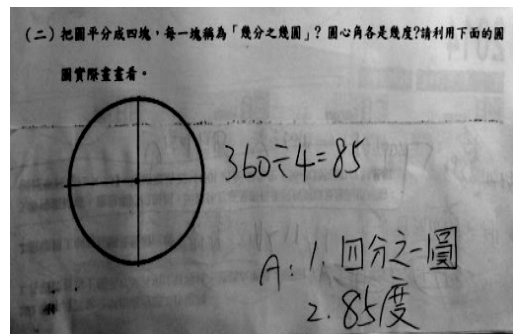 （二）把圓平分成四塊，每一塊稱為「幾分之幾圓」？圓心角各是幾度?請利用下面的圓
圓實際畫畫看。
360÷4=85
A：1. 四分之一圓
2. 85度